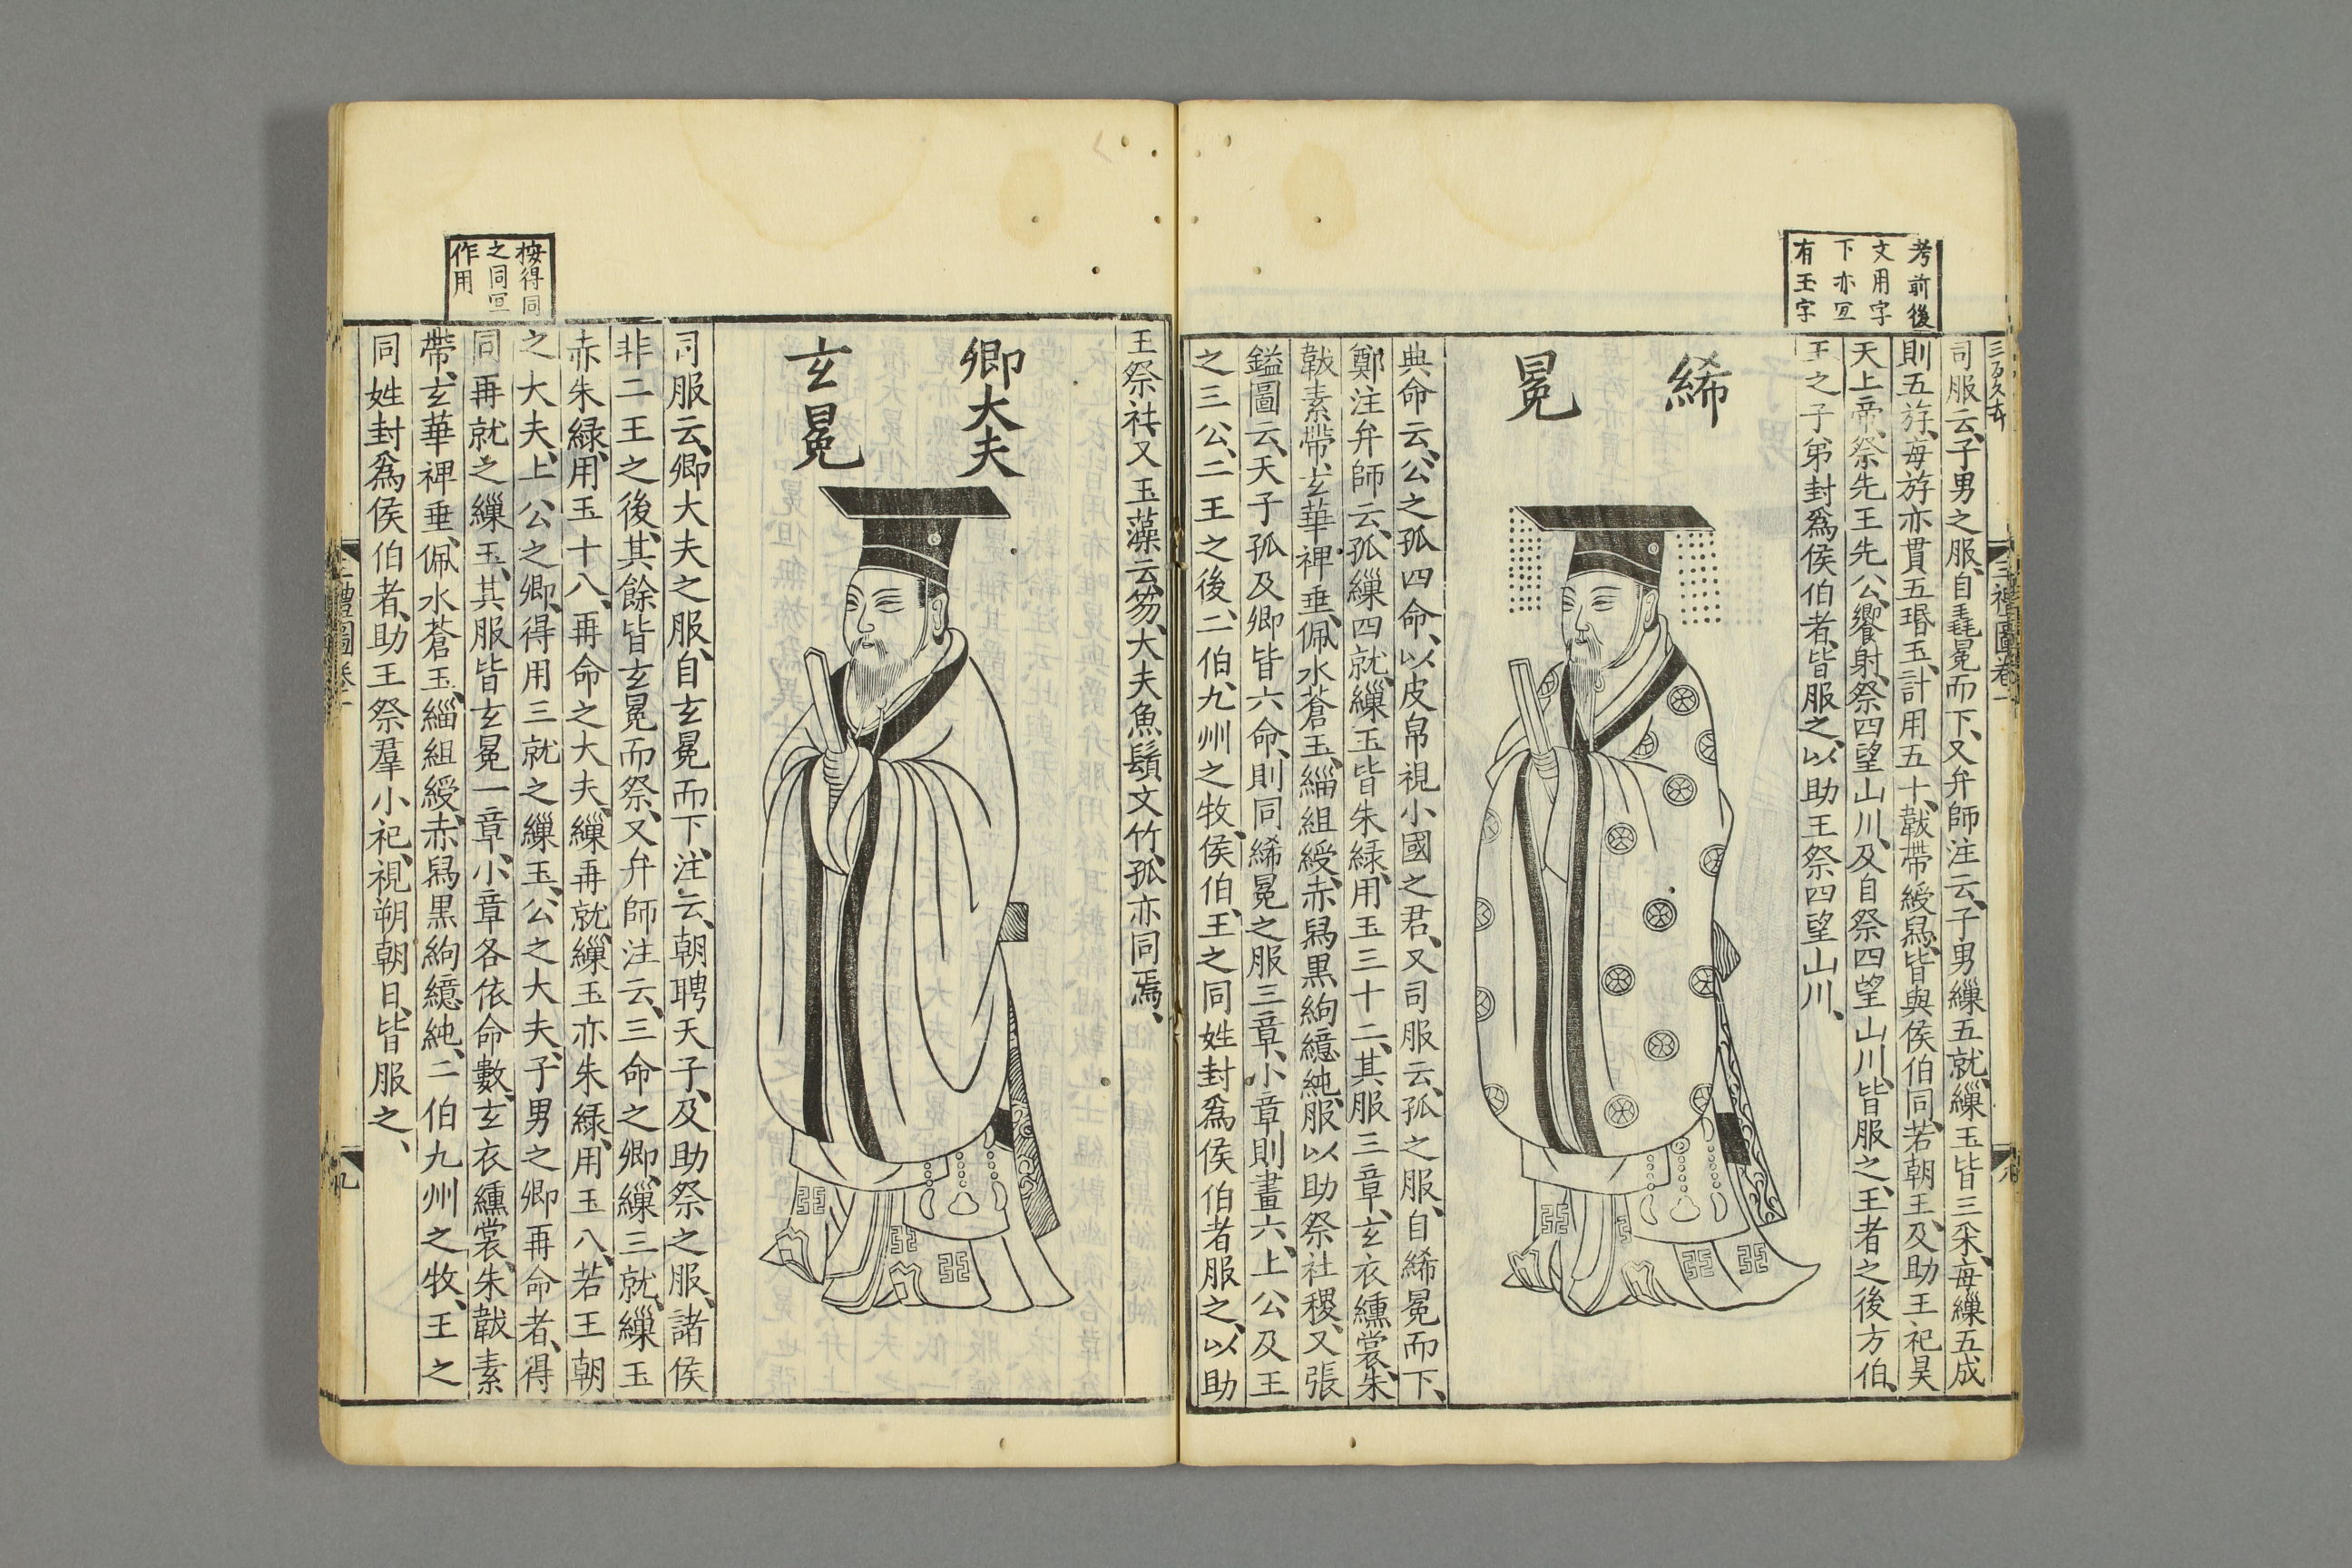 考前後
文用字
下亦冝
有玉字
司服云、子男之服、自毳冕而下、又弁師注云、子男繅五就、繅玉皆三采、毎繅五成
則五斿、毎斿亦貫五㻉玉、計用五十、韍帶綬舄、皆與侯伯同、若朝王、及助王祀昊
天上帝、祭先王先公、饗射、祭四望山川、及自祭四望山川、皆服之、王者之後方伯、
王之子弟封爲侯伯者、皆服之、以助王祭四望山川、
絺
冕
典命云、公之孤四命、以皮帛視小國之君、又司服云、孤之服、自絺冕而下、
鄭注弁師云、孤繅四就、繅玉皆朱緑、用玉三十二、其服三章、玄衣纁裳、朱
韍素帶、玄華裨垂、佩水蒼玉、緇組綬、赤舄黒絇繶純、服以助祭社稷、又張
鎰圖云、天子孤及卿皆六命、則同絺冕之服三章、小章則畫六、上公及王
之三公、二王之後、二伯、九州之牧、侯伯、王之同姓封爲侯伯者服之、以助
三禮圖卷一
王祭社、又玉藻云、笏、大夫魚鬚文竹、孤亦同焉、
卿大夫
玄冕
司服云、卿大夫之服、自玄冕而下、注云、朝聘天子、及助祭之服、諸侯
非二王之後、其餘皆玄冕而祭、又弁師注云、三命之卿、繅三就、繅玉
赤朱緑、用玉十八、再命之大夫、繅再就、繅玉亦朱緑、用玉八、若王朝
之大夫、上公之卿、得用三就之繅玉、公之大夫、子男之卿再命者、得
同再就之繅玉、其服皆玄冕一章、小章各依命數、玄衣纁裳、朱韍素
帶、玄華裨垂、佩水蒼玉、緇組綬、赤舄黒絇繶純、二伯九州之牧、王之
同姓封爲侯伯者、助王祭羣小祀、視朔朝日、皆服之、
按得同
之同冝
作用
三禮圖卷一
九